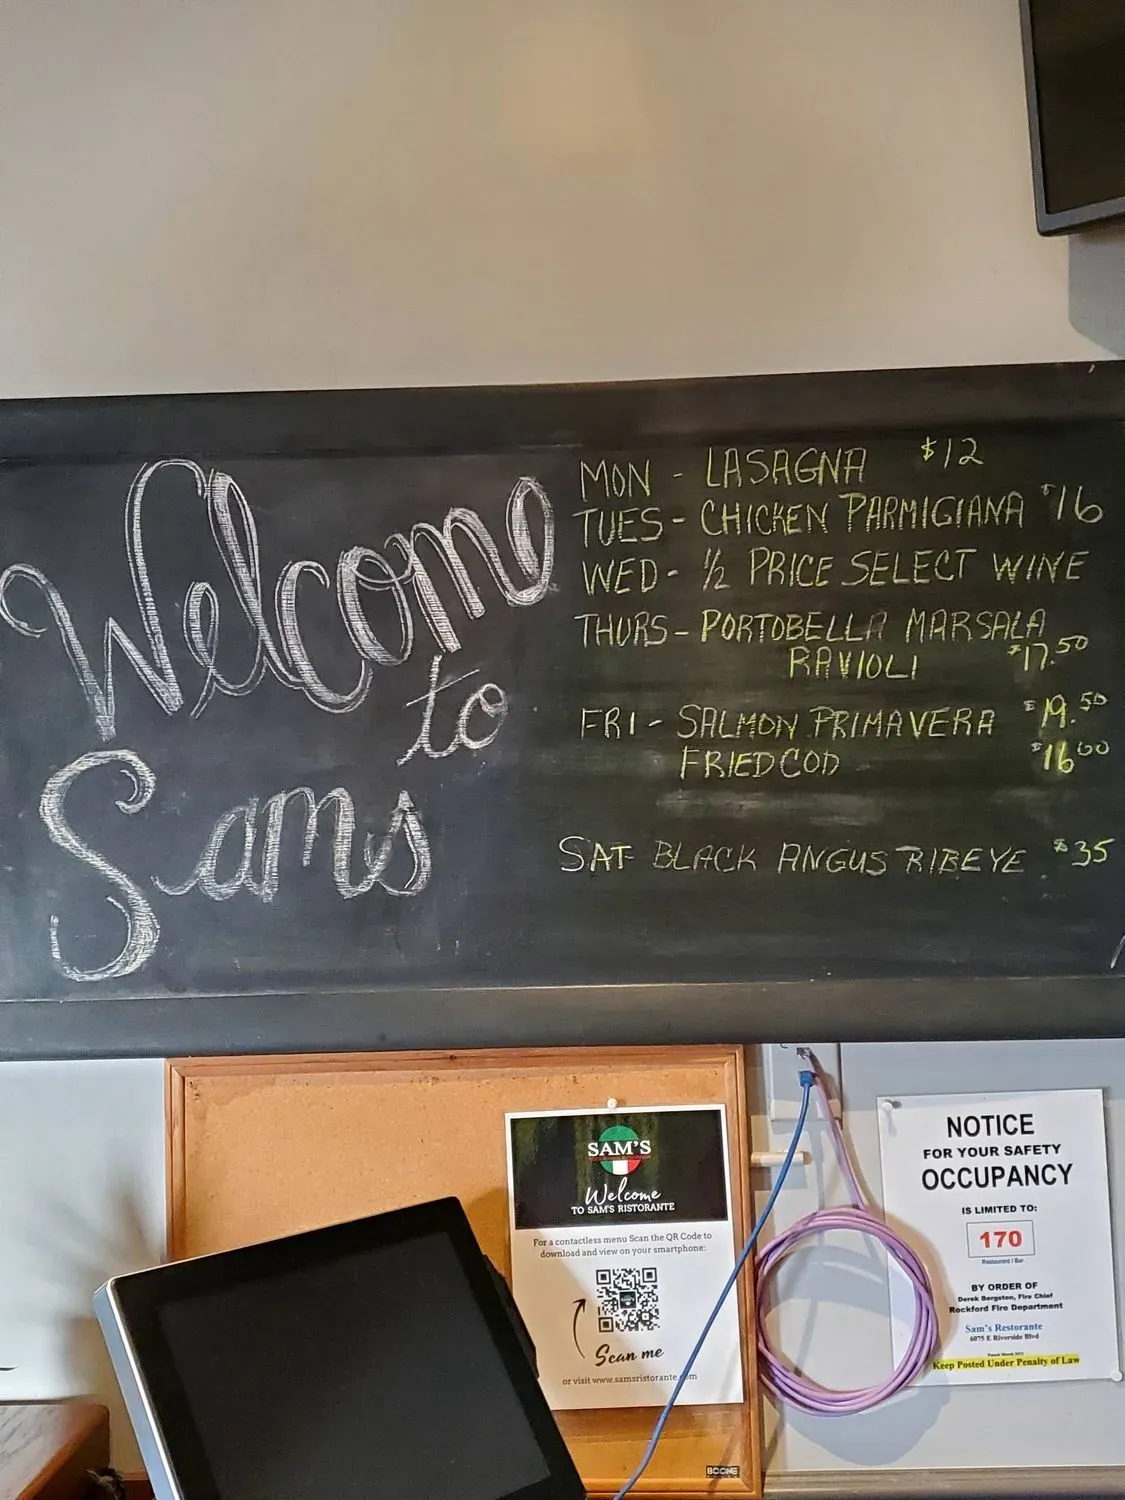 Welcome
to
Sams
MON - LASAGNA $12
TUES - CHICKEN PARMIGIANA $16
WED - ½ PRICE SELECT WINE
THURS - PORTOBELLA MARSALA
RAVIOLI $17.50
FRI - SALMON PRIMAVERA $19.50
FRIED COD $16.00
SAT - BLACK ANGUS RIBEYE $35
SAM'S
Welcome
TO SAM'S RISTORANTE
For a contactless menu Scan the QR Code to
download and view on your smartphone:
Scan me
or visit www.samsristorante.com
BOONE
NOTICE
FOR YOUR SAFETY
OCCUPANCY
IS LIMITED TO:
170
Restaurant / Bar
BY ORDER OF
Derek Bergsten, Fire Chief
Rockford Fire Department
Sam's Restorante
6075 E Riverside Blvd
Keep Posted Under Penalty of Law